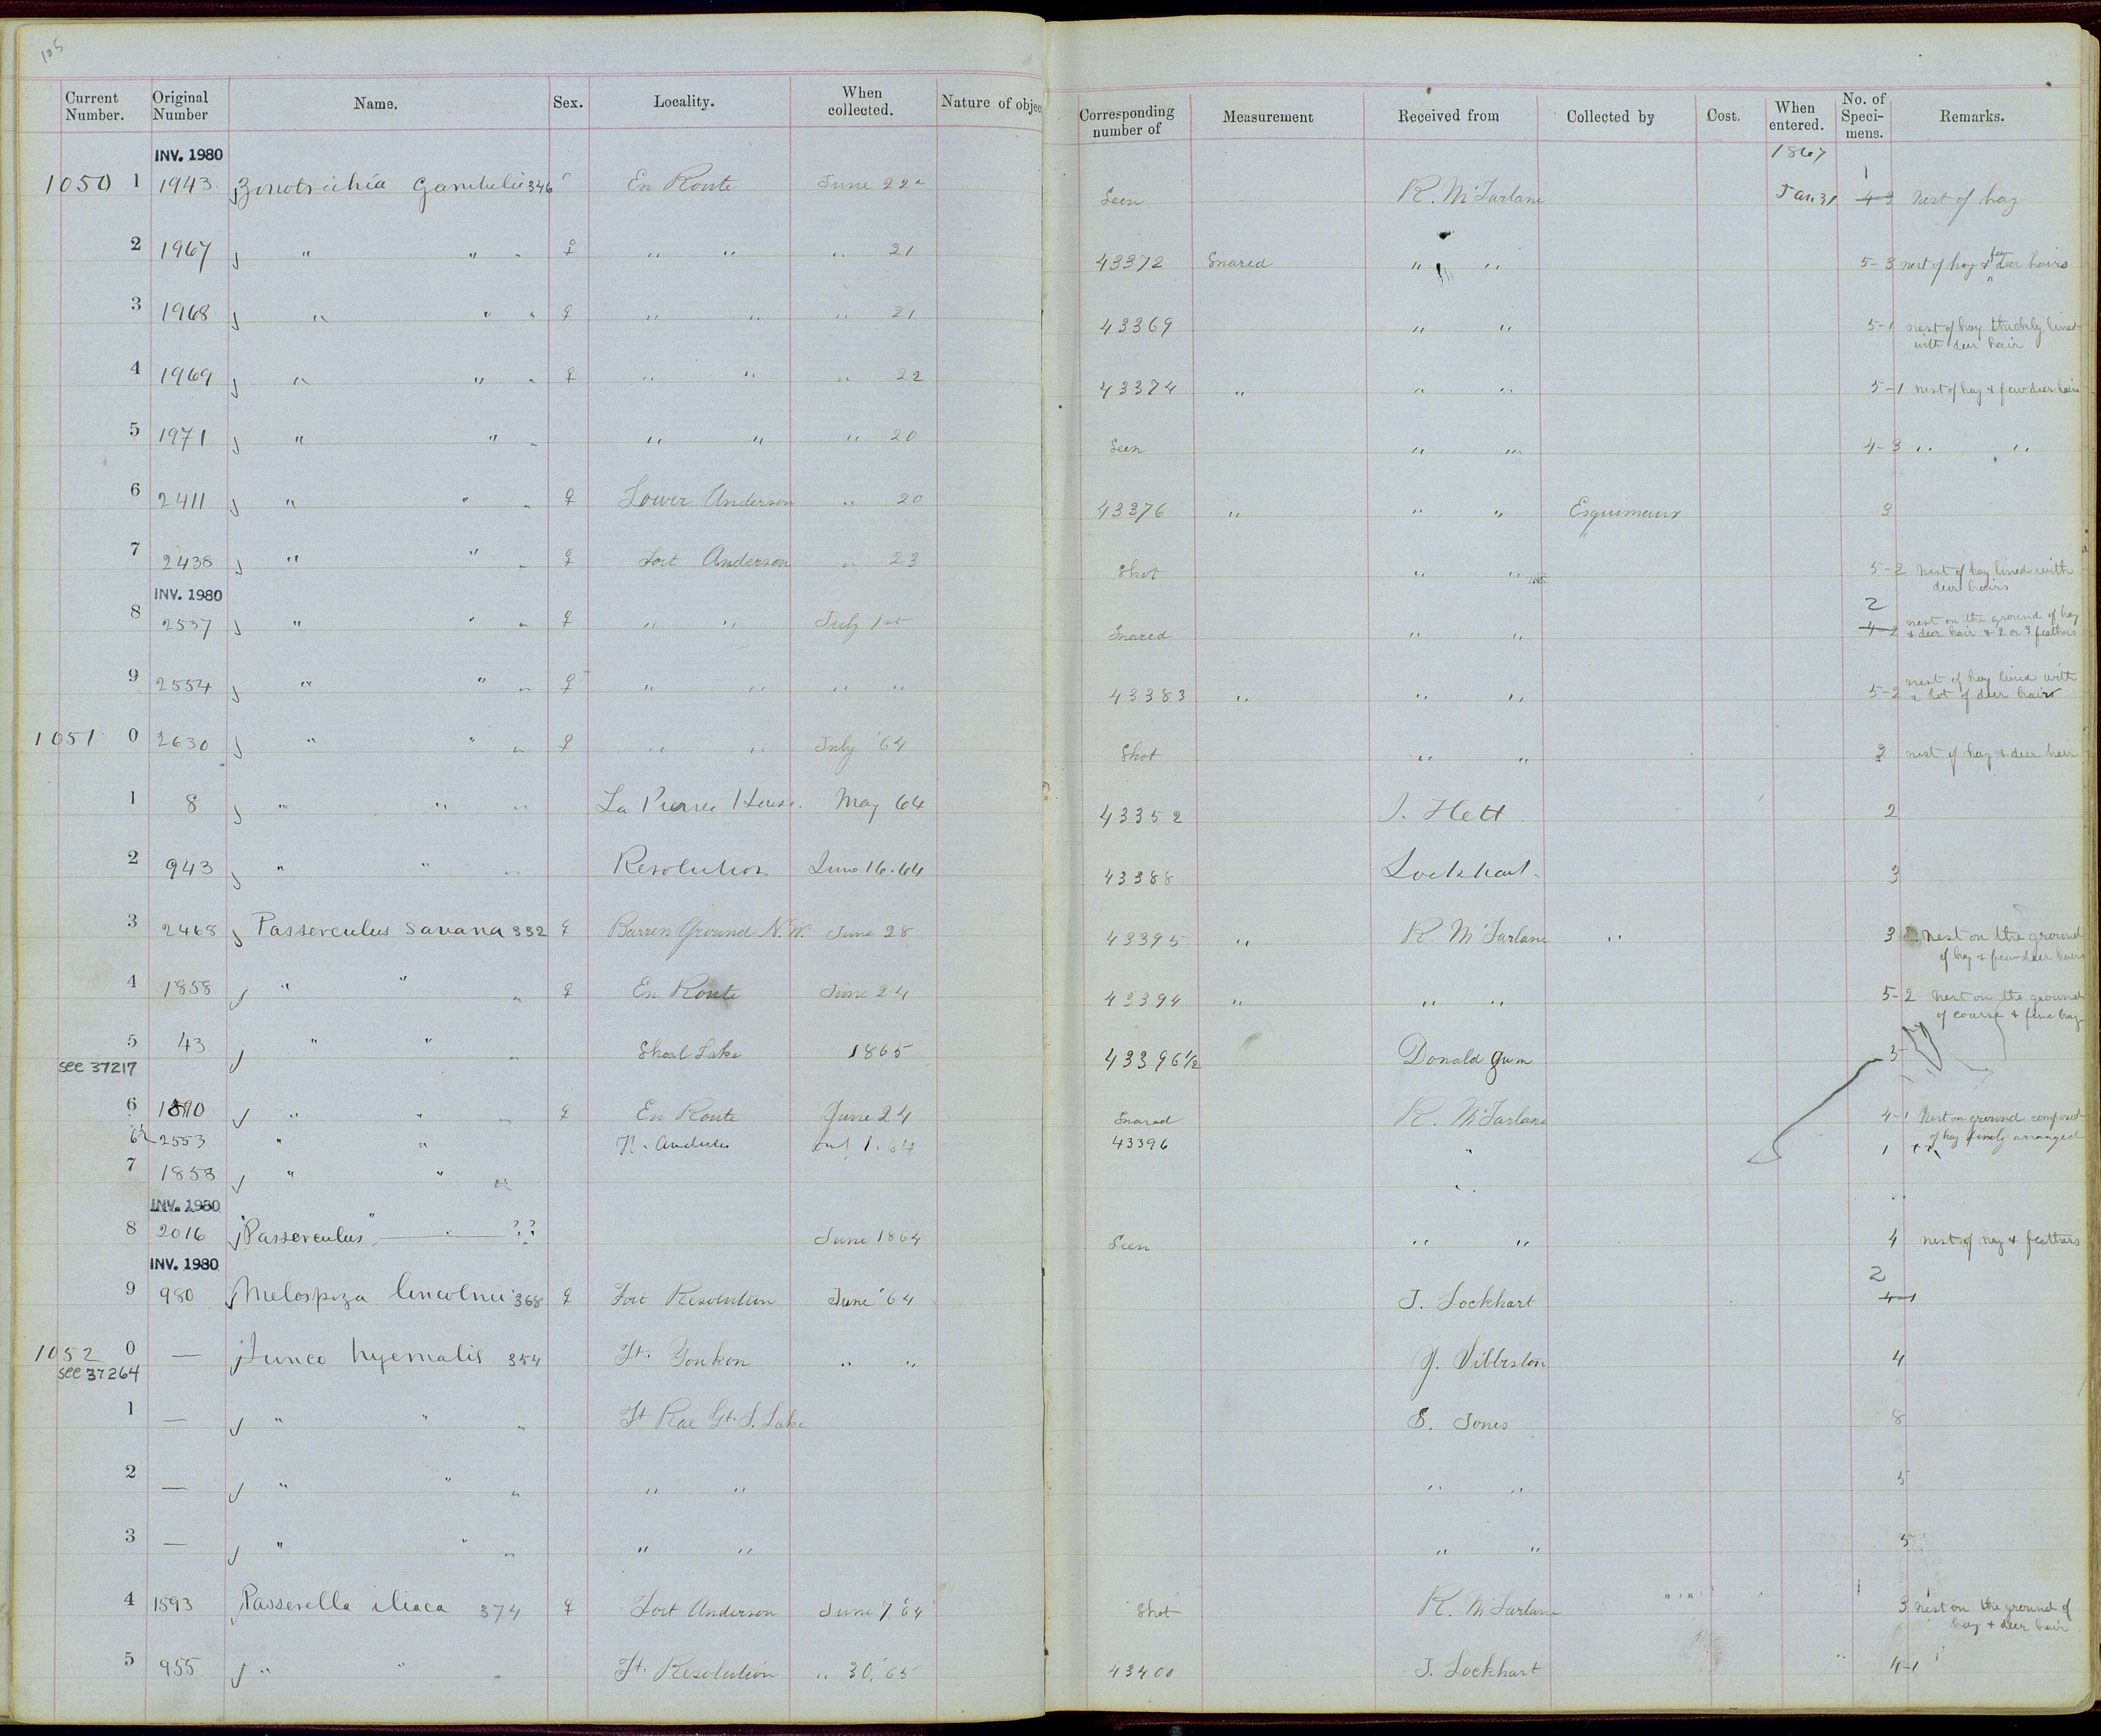 105
Current Number. Original Number Name. Sex. Locality. When collected. Nature of objec Corresponding number of Measurement Received from Collected by Cost. When entered. No. of Specimens. Remarks.
INV. 1980 1867 1
1050 1 1943 Zonotrichia Gambelii 346 En Route June 22 Seen R. McFarlane Jan. 31 4-3 Nest of hay
2 1967 " " " ♀ " " " 21 43372 Snared " " 5-3 nest of hay & few deer hairs
3 1968 " " " ♀ " " " 21 43369 " " 5-1 nest of hay thickly lined
with deer hair
4 1969 " " " ♀ " " " 22 43374 " " " 5-1 nest of hay & few deer hairs
5 1971 " " " " " " 20 Seen " " 4-3 " "
6 2411 " " " ♀ Lower Anderson " 20 43376 " " " Esquimaux 3
7 2438 " " " ♀ Fort Anderson " 23 Shot " " 5-2 Nest of hay lined with
deer hairs
INV. 1980 2
8 2537 " " " ♀ " " July 1st Snared " " 4-2 nest on the ground of hay
& deer hair & 2 or 3 feathers
9 2554 " " " ♀ " " " " 43383 " " " 5-2 nest of hay lined with
a lot of deer hairs
1051 0 2630 " " " ♀ " " July '64 Shot " " 3 nest of hay & deer hair
1 8 " " " La Pierres House. May 64 43352 J. Flett 2
2 943 " " " Resolution June 16. 64 43388 Lockhart. 3
3 2468 Passerculus savana 332 ♀ Barren Ground N.W. June 28 43395 " R. McFarlane " 3 Nest on the ground
of hay & few deer hairs
4 1858 " " " ♀ En Route June 24 43394 " " " 5-2 Nest on the ground
of coarse & fine hay
5 43 " " " Shoal Lake 1865 43396½ Donald Gunn 3
see 37217
6 1890 " " " ♀ En Route June 24 Snared R. McFarlane 4-1 Nest on ground composed
of hay finely arranged
6½ 2553 " " 1. 64 43396 " 1 "
7 1858 " " " "
INV. 1980
8 2016 "Passerculus" ?? June 1864 Seen " " 4 nest of hay & feathers
INV. 1980 2
9 980 Melospiza lincolnii 368 ♀ Fort Resolution June '64 J. Lockhart 4-1
1052 0 — Junco hyemalis 354 Ft. Youkon " " 4
see 37264
1 — " " " Ft Rae Gt. S. Lake S. Jones 8
2 — " " " " " " " 5
3 — " " " " " " " 5
4 1593 Passerella iliaca 374 ♀ Fort Anderson June 7 '64 Shot R. McFarlane 3 Nest on the ground of
hay & deer hair
5 955 " " " Ft. Resolution " 30, '65 43400 J. Lockhart 4-1